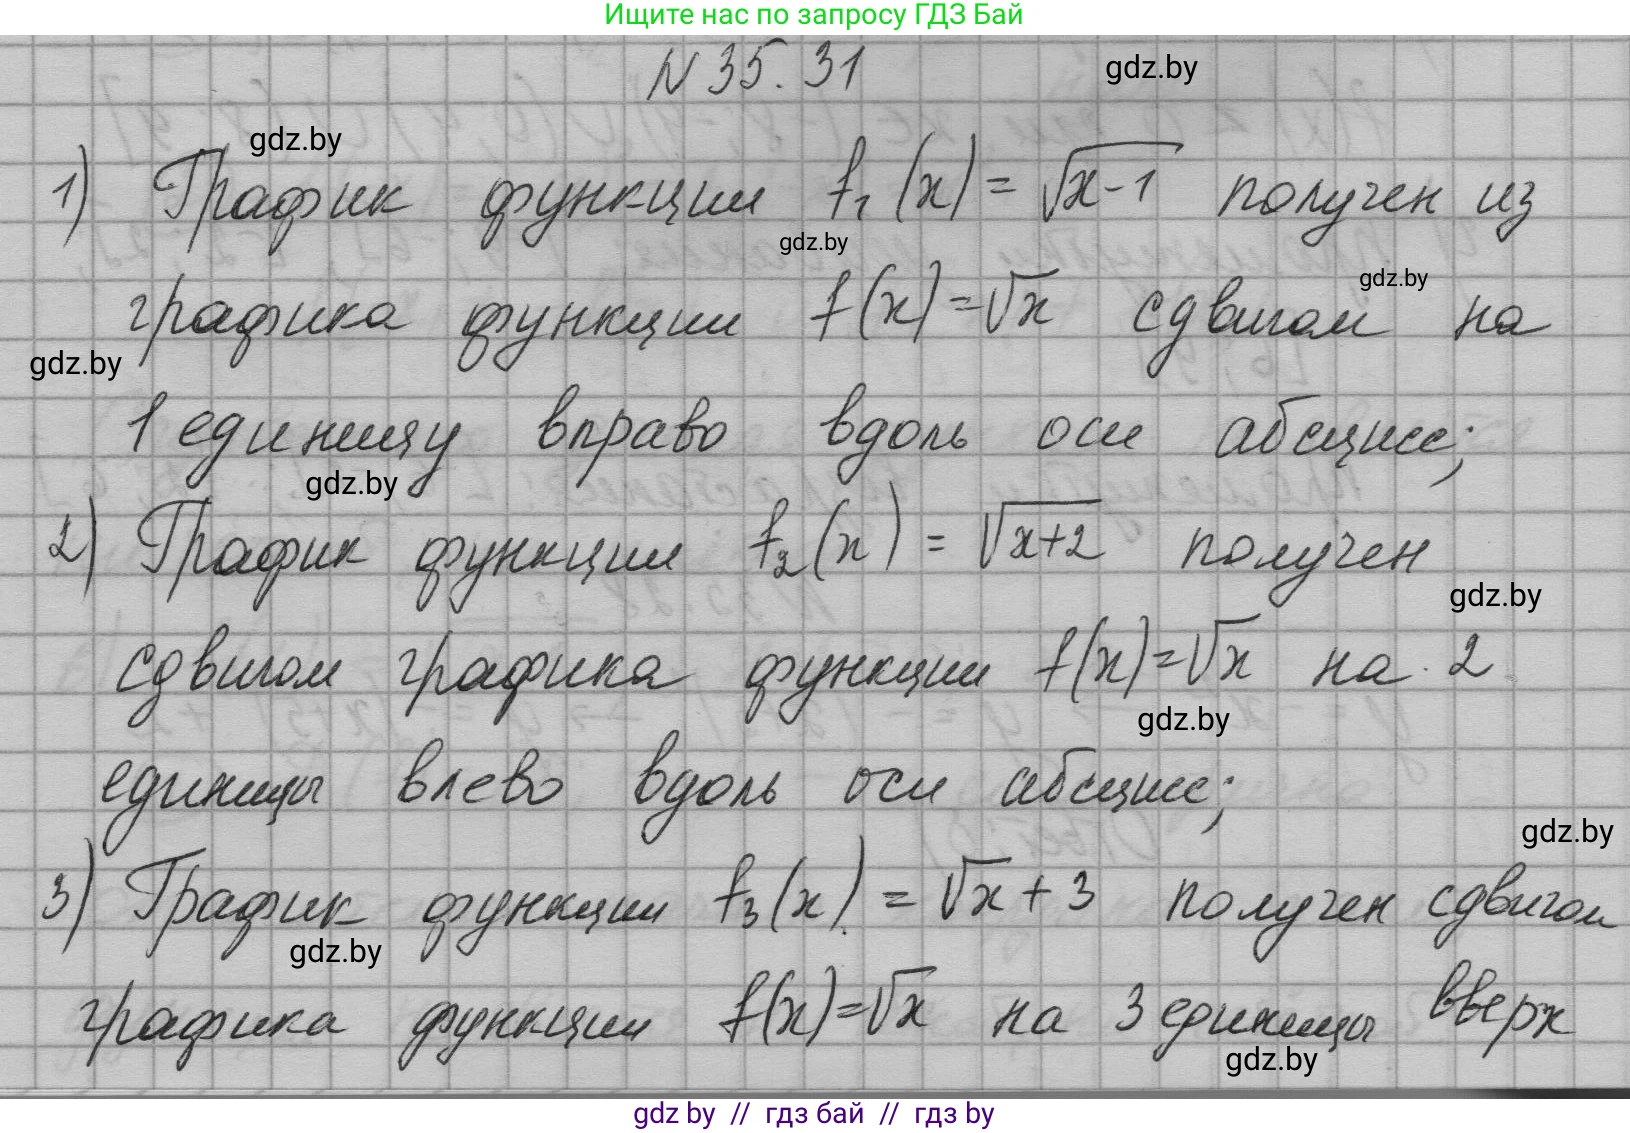 Ищите нас по запросу ГДЗ Бай
N 35.31
gdz.by
gdz.by
1) График функции f₁(x) = √(x-1) получен из
gdz.by
gdz.by
графика функции f(x) = √x сдвигом на
gdz.by
1 единицу вправо вдоль оси абсцисс;
gdz.by
2) График функции f₂(x) = √(x+2) получен
gdz.by
сдвигом графика функции f(x) = √x на 2
gdz.by
единицы влево вдоль оси абсцисс;
gdz.by
3) График функции f₃(x) = √x + 3 получен сдвигом
gdz.by
графика функции f(x) = √x на 3 единицы вверх
gdz.by
gdz by // гдз бай // гдз by